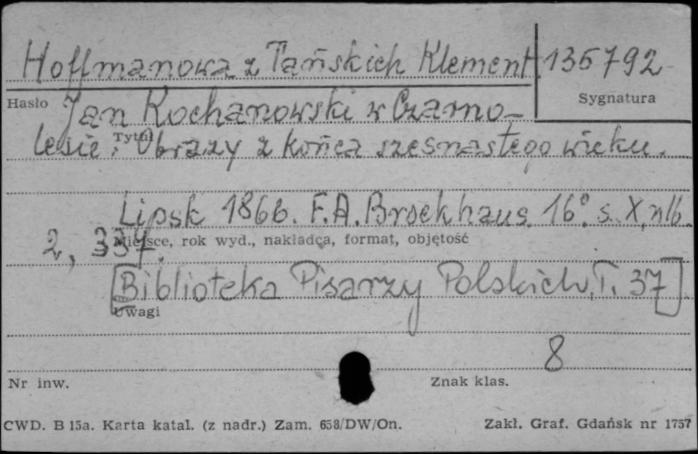 Hoffmanowa z Tańskich Klement. 135792
Hasło Sygnatura
Jan Kochanowski w Czarno-
Tytuł
lesie. Obrazy z końca szesnastego wieku.
Lipsk 1866. F.A. Brockhaus. 16°. s. X, nlb.
Miejsce, rok wyd., nakładca, format, objętość
2, 337.
[Biblioteka Pisarzy Polskich, T. 37]
Uwagi
8
Nr inw. Znak klas.
CWD. B 15a. Karta katal. (z nadr.) Zam. 658/DW/On. Zakł. Graf. Gdańsk nr 1757